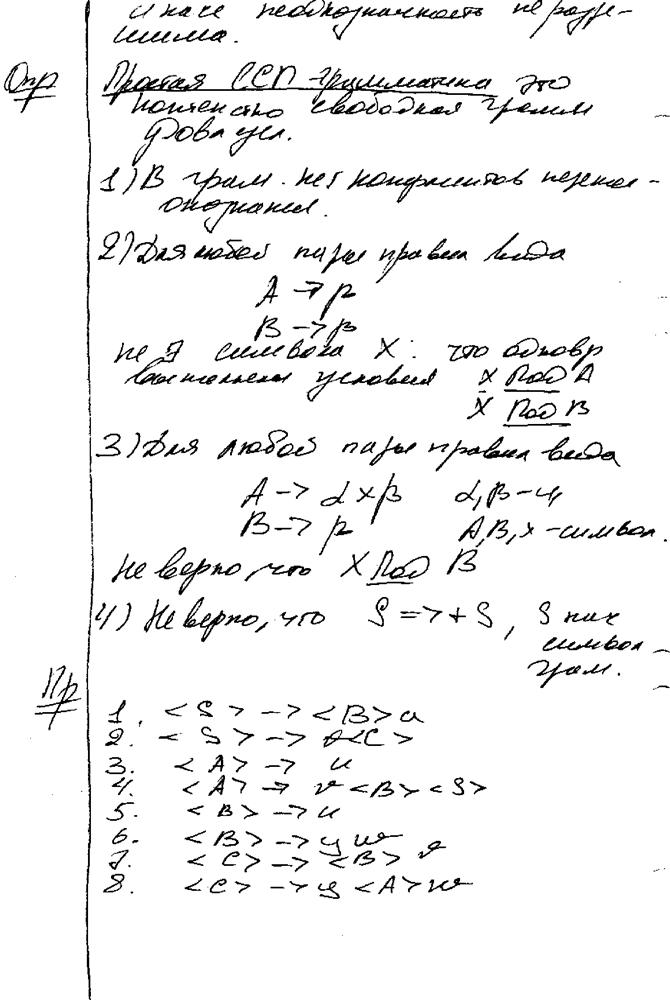 иначе неоднозначность не разре-
шима.
Опр Простая ССП-грамматика это
контекстно свободная грамм
удовл усл.
1) В грам. нет конфликтов перенос-
опознания.
2) Для любой пары правил вида
A → β
B → β
не ∃ символа X: что одновр
выполнены условия X Под A
X Под B
3) Для любой пары правил вида
A → α x β α, β - ц
B → β A, B, x - символ.
Неверно, что X Под B
4) Неверно, что S => + S, S нач
символ
грам.
Пр
1. <S> → <B> a
2. <S> → <C>
3. <A> → u
4. <A> → v <B> <S>
5. <B> → u
6. <B> → y w
7. <C> → <B> v
8. <C> → y <A> w